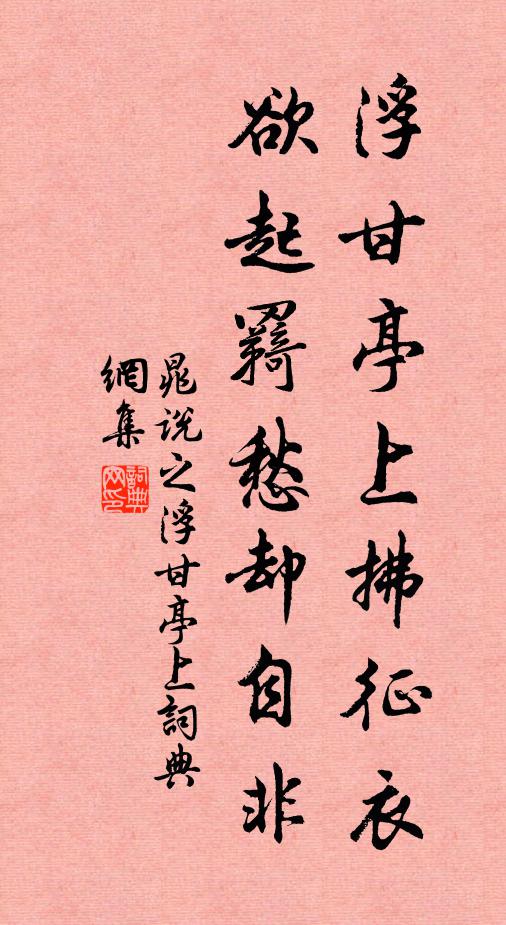 浮甘亭上拂征衣
欲起羇愁却自非
晁说之浮甘亭上詞典
網集
詞典
网印